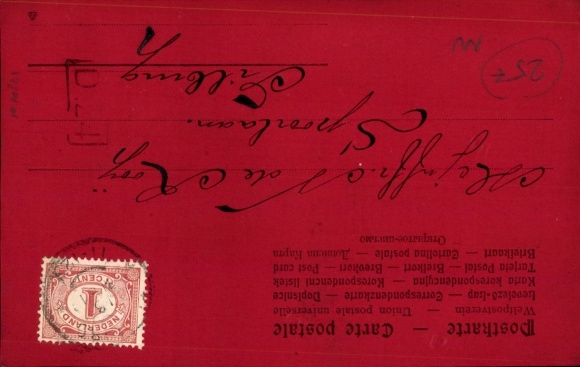 Postkarte — Carte postale
Weltpostverein — Union postale universelle
Levelező-lap — Correspondenzkarte — Dopisnice
Karta korespondencyjna — Korespondenční lístek
Tarjeta Postal — Brefkort — Brevkort — Post card
Briefkaart — Cartolina postale —
NEDERLAND
1
CENT
de Rooij
Spoorlaan.
Tilburg
257